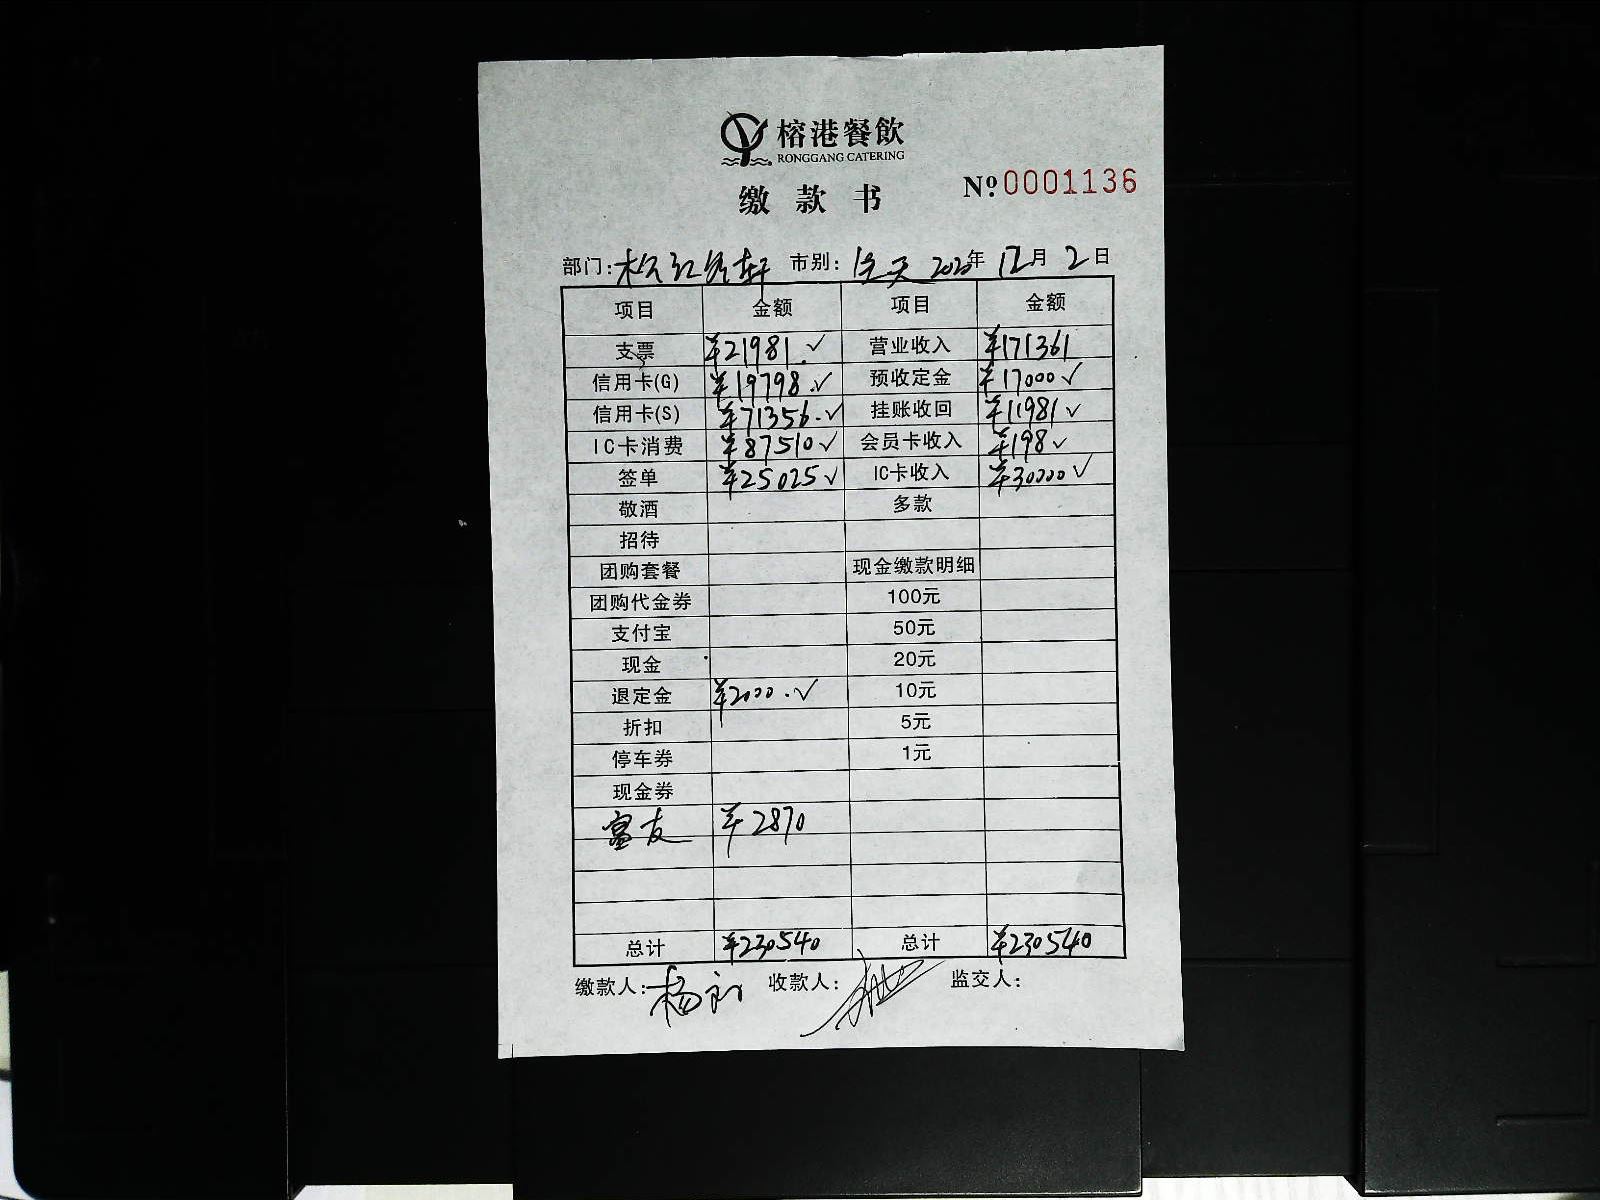 榕港餐飲
RONGGANG CATERING
缴款书 № 0001136
部门: 市别: 全天 2020年 12月 2日
项目 金额 项目 金额
支票 ¥21981. ✓ 营业收入 ¥171361
信用卡(G) ¥19798. ✓ 预收定金 ¥17000 ✓
信用卡(S) ¥71356. ✓ 挂账收回 ¥11981 ✓
IC卡消费 ¥87510 ✓ 会员卡收入 ¥198 ✓
签单 ¥25025 ✓ IC卡收入 ¥30000 ✓
敬酒 多款
招待
团购套餐 现金缴款明细
团购代金券 100元
支付宝 50元
现金 20元
退定金 ¥2000. ✓ 10元
折扣 5元
停车券 1元
现金券
富友 ¥2870
总计 ¥230540 总计 ¥230540
缴款人: 杨 收款人: 监交人: